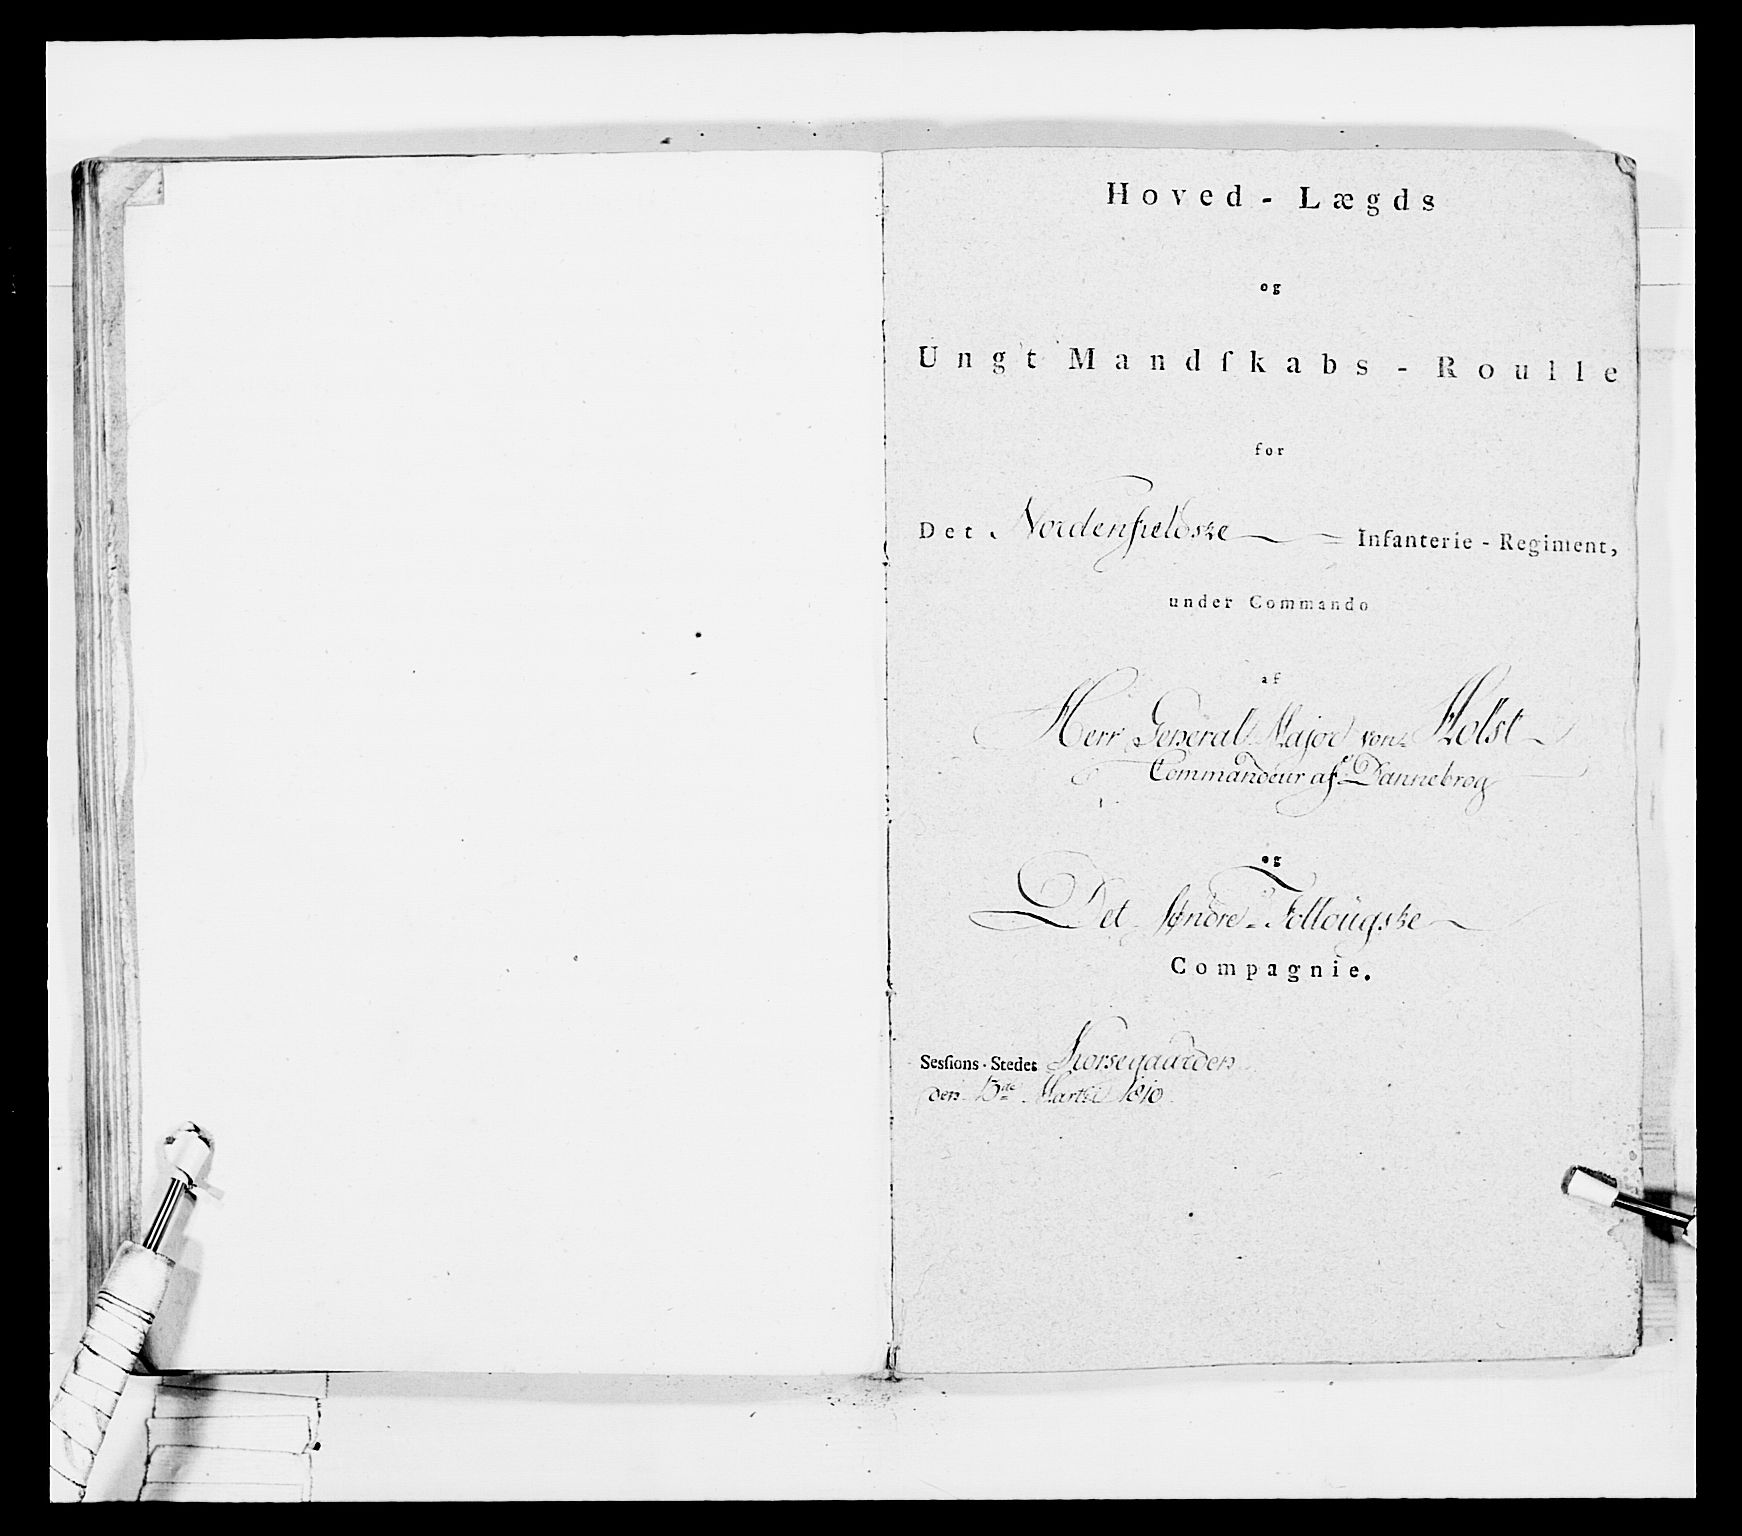 Hoved - Lægds
og
Ungt Mandſkabs - Roulle
for
Det Nordenfieldske Infanterie - Regiment,
under Commando
af
Herr General Major von Holst
Commandeur af Dannebrog
og
Det Søndre Follougske
Compagnie.
Seſſions-Stedet Korsegaarden
den 13de Martii 1810